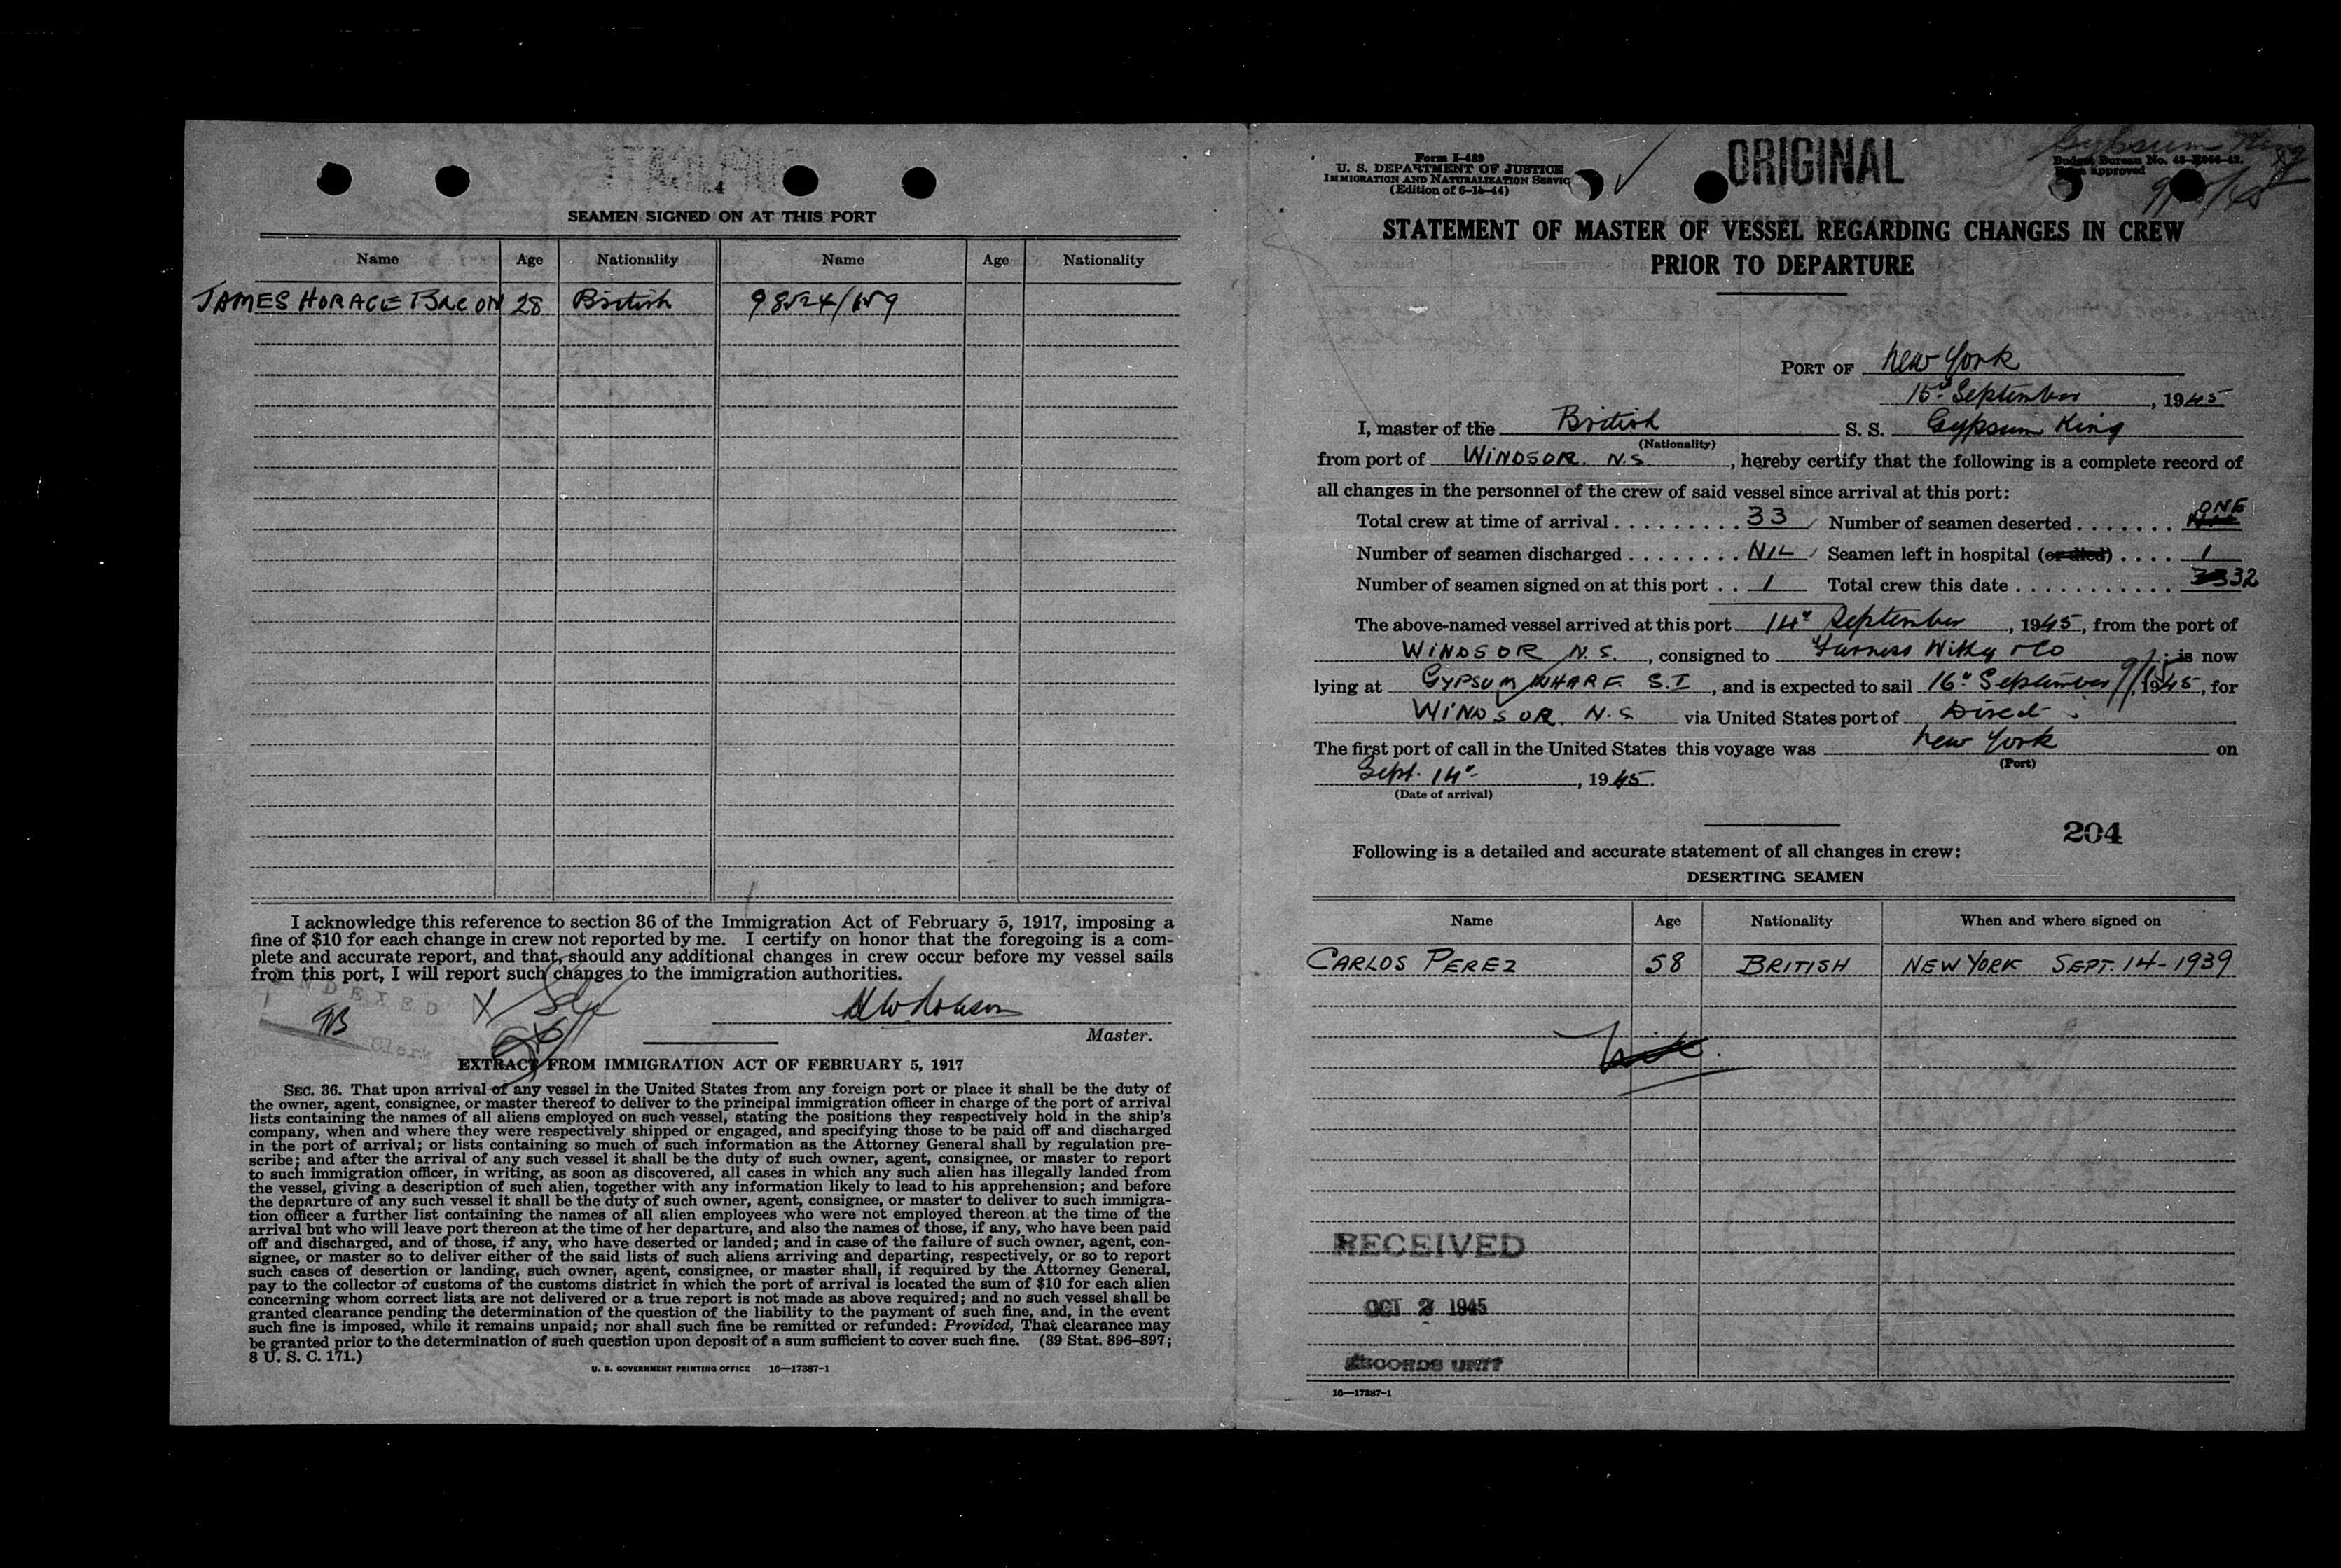 4
SEAMEN SIGNED ON AT THIS PORT
Name Age Nationality Name Age Nationality
JAMES HORACE BACON 28 British 98524/159
I acknowledge this reference to section 36 of the Immigration Act of February 5, 1917, imposing a
fine of $10 for each change in crew not reported by me. I certify on honor that the foregoing is a com-
plete and accurate report, and that, should any additional changes in crew occur before my vessel sails
from this port, I will report such changes to the immigration authorities.
INDEXED
Clerk
Master.
EXTRACT FROM IMMIGRATION ACT OF FEBRUARY 5, 1917
SEC. 36. That upon arrival of any vessel in the United States from any foreign port or place it shall be the duty of
the owner, agent, consignee, or master thereof to deliver to the principal immigration officer in charge of the port of arrival
lists containing the names of all aliens employed on such vessel, stating the positions they respectively hold in the ship's
company, when and where they were respectively shipped or engaged, and specifying those to be paid off and discharged
in the port of arrival; or lists containing so much of such information as the Attorney General shall by regulation pre-
scribe; and after the arrival of any such vessel it shall be the duty of such owner, agent, consignee, or master to report
to such immigration officer, in writing, as soon as discovered, all cases in which any such alien has illegally landed from
the vessel, giving a description of such alien, together with any information likely to lead to his apprehension; and before
the departure of any such vessel it shall be the duty of such owner, agent, consignee, or master to deliver to such immigra-
tion officer a further list containing the names of all alien employees who were not employed thereon at the time of the
arrival but who will leave port thereon at the time of her departure, and also the names of those, if any, who have been paid
off and discharged, and of those, if any, who have deserted or landed; and in case of the failure of such owner, agent, con-
signee, or master so to deliver either of the said lists of such aliens arriving and departing, respectively, or so to report
such cases of desertion or landing, such owner, agent, consignee, or master shall, if required by the Attorney General,
pay to the collector of customs of the customs district in which the port of arrival is located the sum of $10 for each alien
concerning whom correct lists are not delivered or a true report is not made as above required; and no such vessel shall be
granted clearance pending the determination of the question of the liability to the payment of such fine, and, in the event
such fine is imposed, while it remains unpaid; nor shall such fine be remitted or refunded: Provided, That clearance may
be granted prior to the determination of such question upon deposit of a sum sufficient to cover such fine. (39 Stat. 896–897;
8 U. S. C. 171.)
U. S. GOVERNMENT PRINTING OFFICE 16—17387-1
Form I-489
U. S. DEPARTMENT OF JUSTICE
IMMIGRATION AND NATURALIZATION SERVIC
(Edition of 6-15-44)
ORIGINAL
Gypsum King
Budget Bureau No.
approved
STATEMENT OF MASTER OF VESSEL REGARDING CHANGES IN CREW
PRIOR TO DEPARTURE
PORT OF New York
15th September, 1945
I, master of the British S. S. Gypsum King
(Nationality)
from port of WINDSOR N.S., hereby certify that the following is a complete record of
all changes in the personnel of the crew of said vessel since arrival at this port:
Total crew at time of arrival . . . . . . . . . 33 Number of seamen deserted . . . . . . . ONE
Number of seamen discharged . . . . . . . . NIL Seamen left in hospital (or died) . . . . 1
Number of seamen signed on at this port . . 1 Total crew this date . . . . . . . . . . . . 33 32
The above-named vessel arrived at this port 14th September, 1945, from the port of
WINDSOR N.S., consigned to Furness Withy & Co; is now
lying at GYPSUM WHARF S.I, and is expected to sail 16th September, 1945, for
WINDSOR N.S via United States port of Direct
The first port of call in the United States this voyage was New York on
(Port)
Sept. 14th, 1945.
(Date of arrival)
204
Following is a detailed and accurate statement of all changes in crew:
DESERTING SEAMEN
Name Age Nationality When and where signed on
CARLOS PEREZ 58 BRITISH NEW YORK SEPT. 14-1939
RECEIVED
OCT 2 1945
RECORDS UNIT
16—17387-1